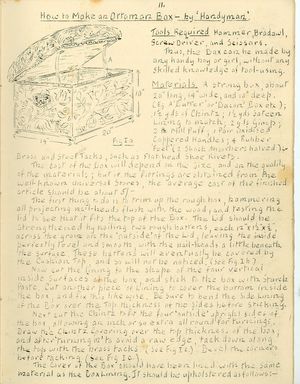 11.
How to Make an Ottoman Box — by 'Handyman'
Tools Required Hammer, Bradawl,
Screw Driver, and Scissors.
Thus, the Box can be made by
any handy boy or girl, without any
skilled knowledge of tool-using.
Materials A strong box, about
2' long, 14" wide, and 10" deep.
(eg. A 'Butter' or 'Bacon' Box etc);
1½ yds of Chintz, 1½ yds Sateen
lining to match, yds Gimp,
Mill Puff, 1 Pair Oxidised
Coppered Handles, 4 Rubber
Feet
Brass and Steel Tacks,
A
18"
10"
Fig Ia
The cost of the Box will depend on the size, and on the quality
of the materials; but if the fittings are obtained from the
well-known universal stores, the average cost of the finished
article should be about 5/-
The first thing to do is to trim up the rough box, hammering
all projecting nail-heads flush with the wood, and testing the
lid to see that it fits the top of the Box. The lid should be
strengthened by nailing two rough battens, each
across the grain on the outside of the lid, leaving the inside
perfectly level and smooth, with the nail-heads a little beneath
the surface. These battens will eventually be covered by
the Cushion Top, and so will not be noticed. (See Fig Ib.)
Now cut the lining to the shape of the four vertical
inside surfaces of the box, and stick to the box with starch
paste. Cut another piece of lining to cover the bottom inside
the box, and fix this likewise. Be sure to bend the side lining
of the Box over the top thickness of the sides before sticking.
Now cut the Chintz to fit the four 'outside' upright sides of
the box, allowing an inch or so extra all round for turnings.
Draw the Chintz covering over the top thickness of the box,
and after turning in to avoid a raw edge, tack down along
the top with the brass tacks (See Fig Ic). Bevel the corners
before tacking (See Fig Ic.)
The cover of the Box should have been lined with the same
material as the Box lining. It should be upholstered as follows:—